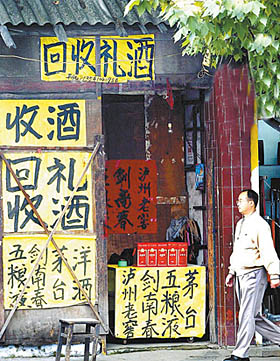 回收礼酒
收酒
回礼
收酒
五粮液
剑南春
茅台
洋酒
剑南春
泸州老窖
泸州老窖
剑南春
五粮液
茅台